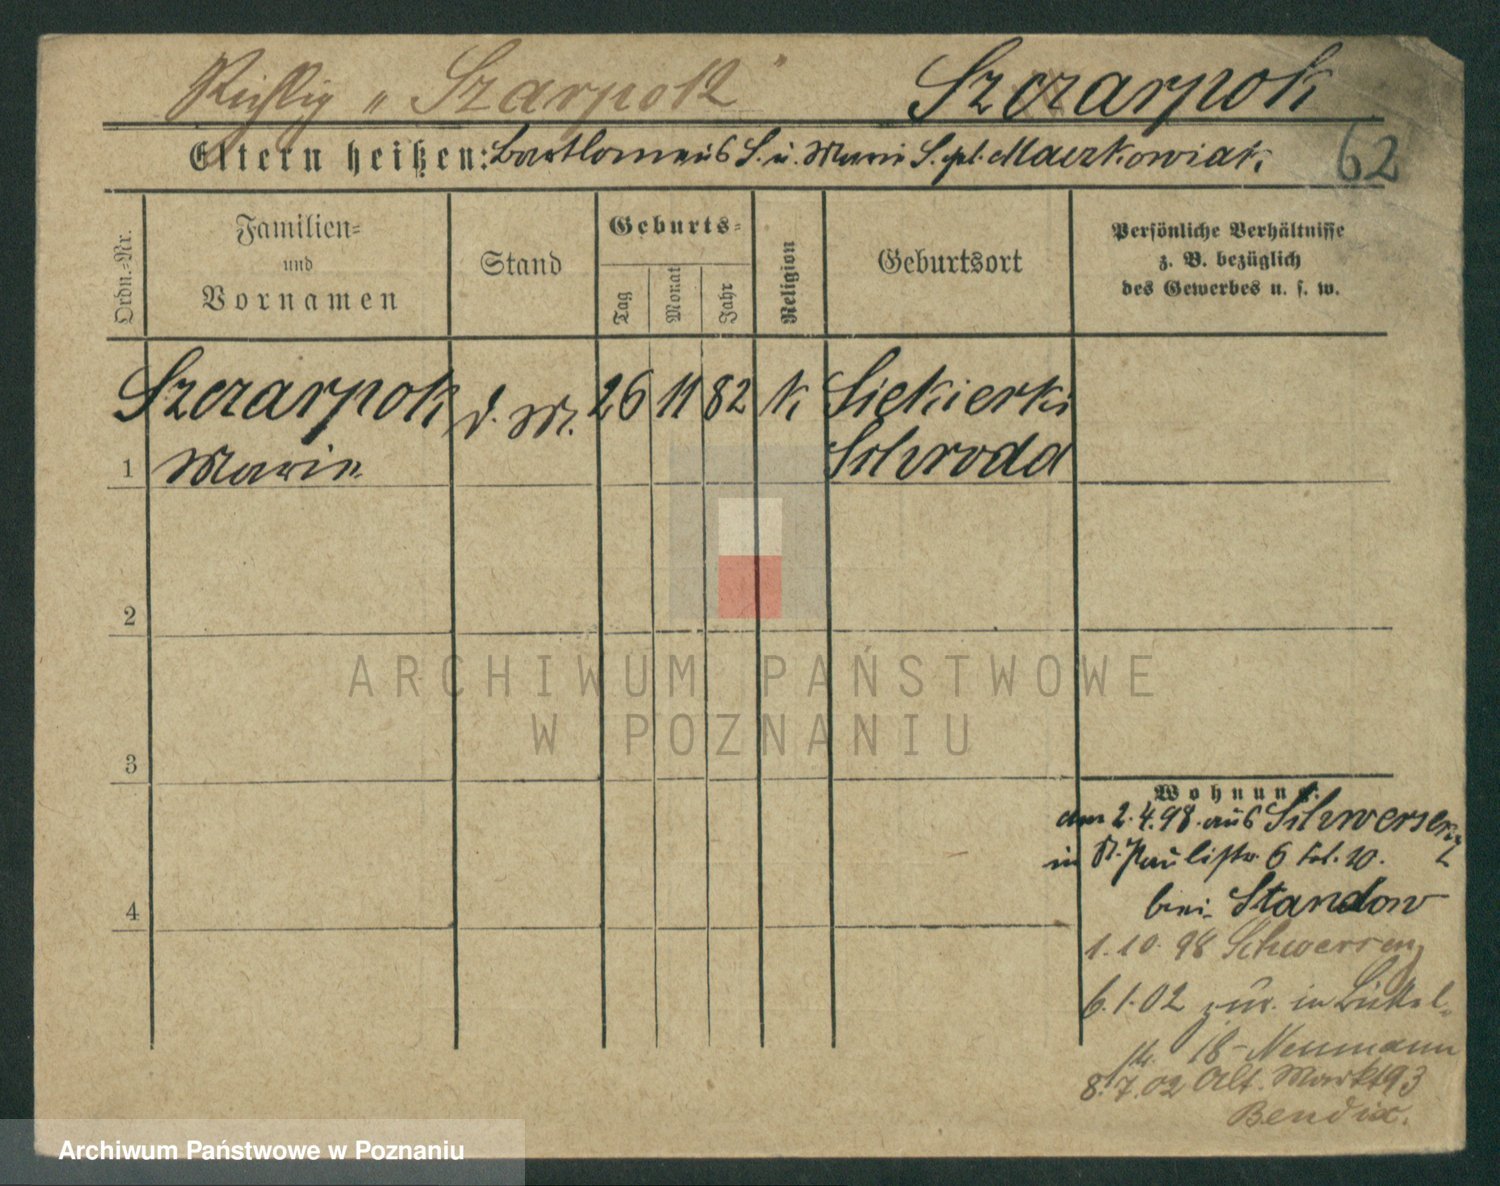 Richtig „Szarpok" Szczarpok
Eltern heißen: Bartlomeus S. u. Marie S. geb. Maczkowiak
62
Ordn.-Nr.
Familien-
und
Vornamen
Stand
Geburts-
Tag
Monat
Jahr
Religion
Geburtsort
Persönliche Verhältnisse
z. B. bezüglich
des Gewerbes u. s. w.
Szczarpok d. M. 26 11 82 k. Siekierki
1 Marie Schroda
2
3
4
Wohnung.
am 2.4.98 aus Schwersenz
in St. Paulistr. 6 10.
bei Standow
1.10.98 Schwersenz
6.1.02 zur. in Büttel-
str. 18 - Neumann
8.7.02 Alt. Markt 93
Bendix.
ARCHIWUM PAŃSTWOWE
W POZNANIU
Archiwum Państwowe w Poznaniu